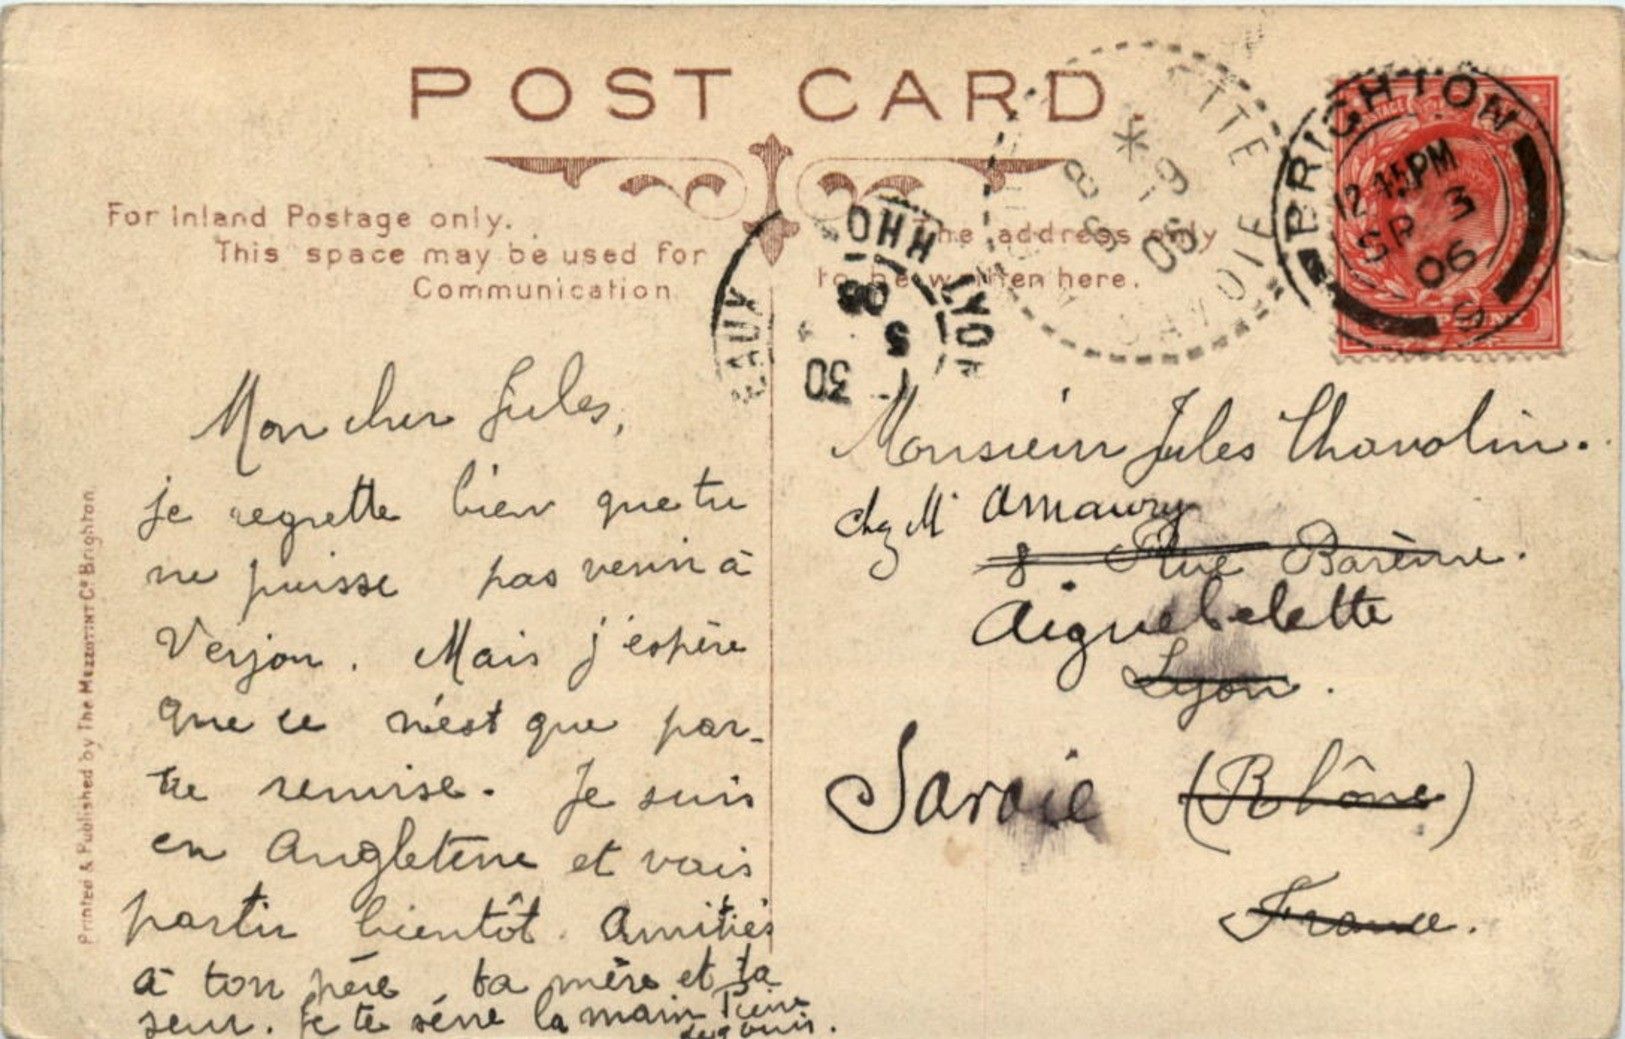 POST CARD.
For Inland Postage only.
This space may be used for
Communication
The address only
to be written here.
BRIGHTON
12 15PM
SP 3
06
S
LYON
RHO
5
06
30
EAUX
ETTE
SAVOIE
8
9
06
Printed & Published by The Mezzotint Co Brighton.
Mon cher Jules,
je regrette bien que tu
ne puisse pas venir à
Verjon. Mais j'espère
que ce n'est que par-
tie remise. Je suis
en Angleterre et vais
partir bientôt. Amitiés
à ton père, ta mère et ta
seur. Je te serre la main Pierre
Monsieur Jules Chavolin.
chez Mr Amaury
8 Rue Barème.
Aiguebelette
Lyon.
Savoie (Rhône)
France.